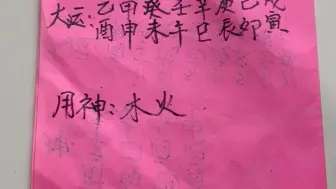 大运:乙甲癸壬辛庚己戊
酉申未午巳辰卯寅
用神:水火